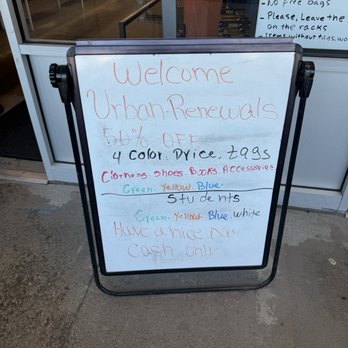 - No free bags
- Please, Leave the
on the racks
Items without tags, wo
Welcome
Urban.Renewals
50% OFF
4 Color. Price. tags
Clothens. Shoes. Books Accessories
Green. Yellow. Blue.
Students
Green. Yellow. Blue. white
Have a nice Day
Cash only